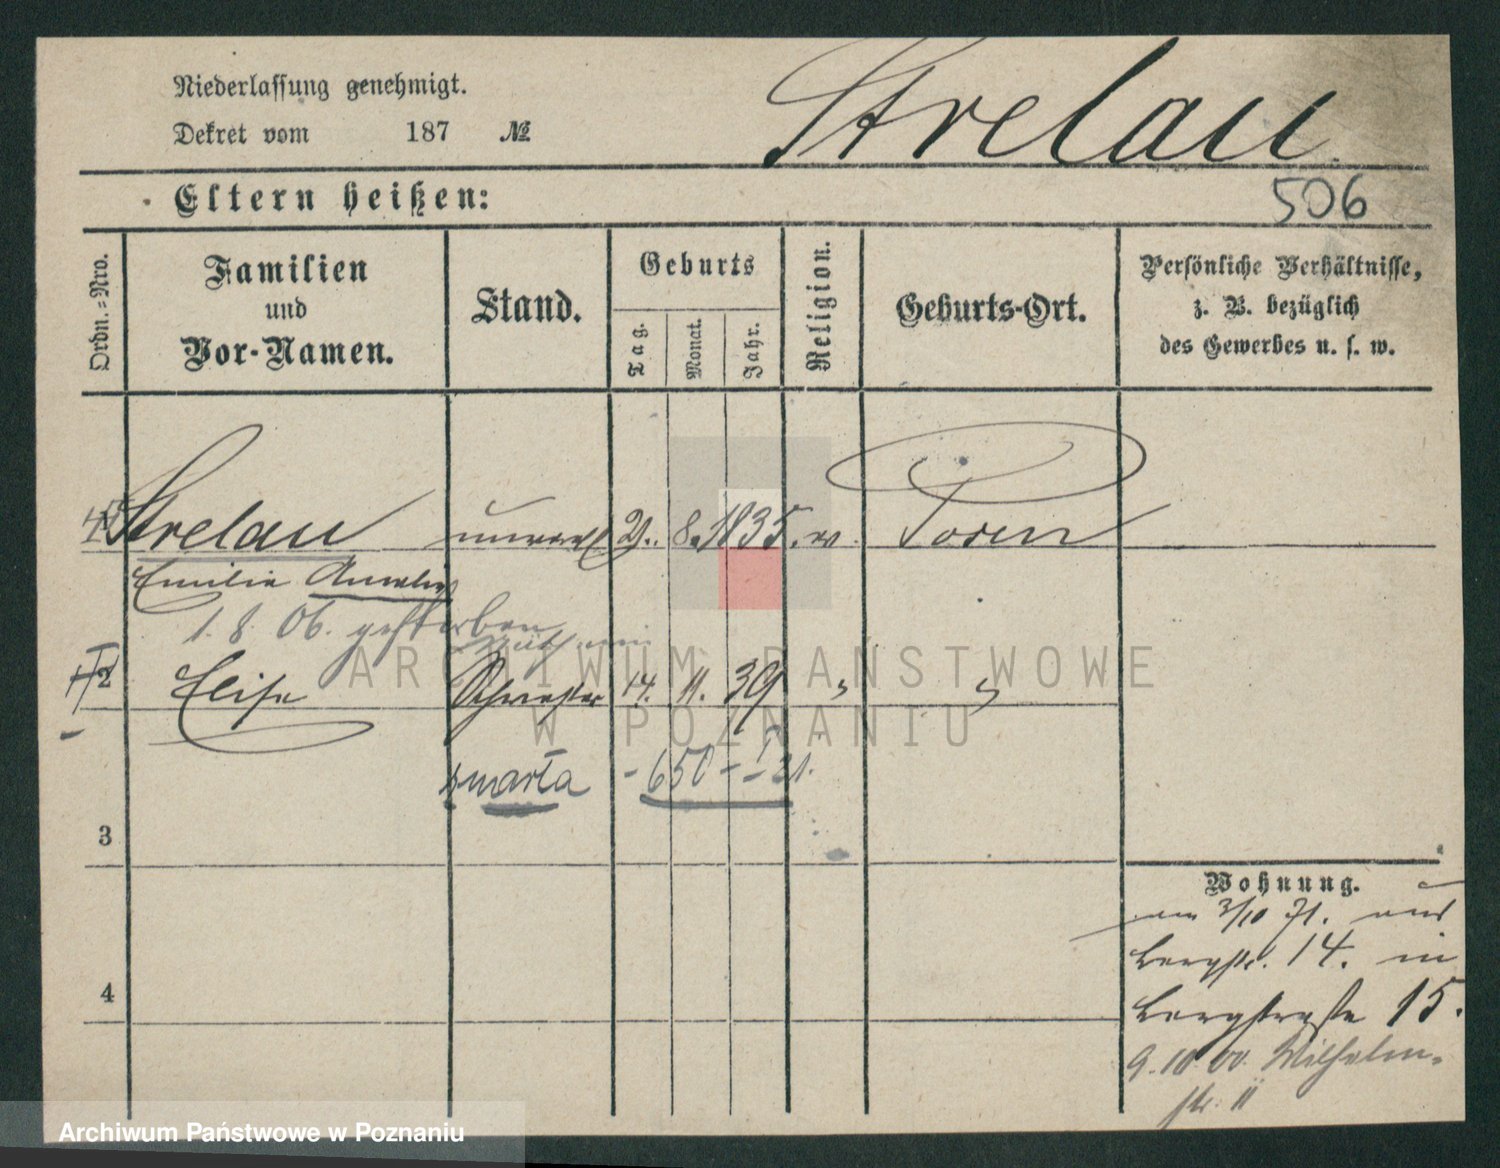 Niederlassung genehmigt.
Strelau
Dekret vom 187 №
Eltern heißen:
506
Ordn.-Nro.
Familien
und
Vor-Namen.
Stand.
Geburts
Tag.
Monat.
Jahr.
Religion.
Geburts-Ort.
Persönliche Verhältnisse,
z. B. bezüglich
des Gewerbes u. s. w.
Strelau unverehl 2. 8. 1835. ev. Posen
Emilie Amalie
1. 8. 06. gestorben
2 Elise Schwester 14. 11. 39 " "
ARCHIWUM PAŃSTWOWE
W POZNANIU
zmarła - 650 - I 21.
3
Wohnung.
am 3/10 71. aus
Bergstr. 14. in
4
Bergstraße 15.
9. 10 00. Wilhelm-
str. 11
Archiwum Państwowe w Poznaniu